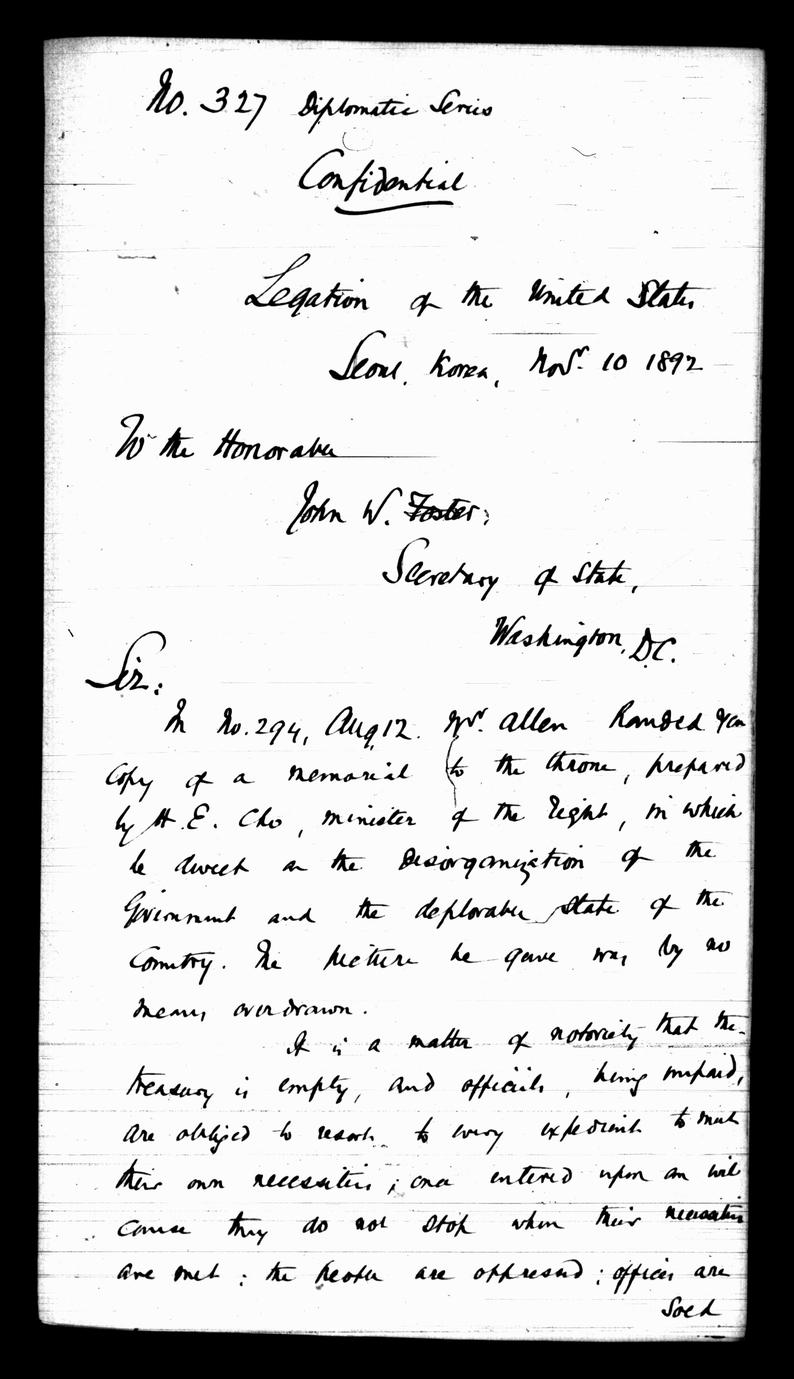 No. 327 Diplomatic Series
Confidential
Legation of the United States
Seoul, Korea, Novr. 10 1892
To the Honorable
John W. Foster,
Secretary of State,
Washington, D.C.
Sir:
In No. 294, Aug. 12. Mr. Allen handed you
copy of a memorial to the throne, prepared
by H. E. Cho, minister of the Right, in which
he dwelt on the disorganization of the
Government and the deplorable state of the
Country. The picture he gave was by no
means overdrawn.
It is a matter of notoriety that the
treasury is empty, and officials, being unpaid,
are obliged to resort to every expedient to meet
their own necessities; once entered upon an evil
course they do not stop when their necessities
are met; the people are oppressed; offices are
Sold